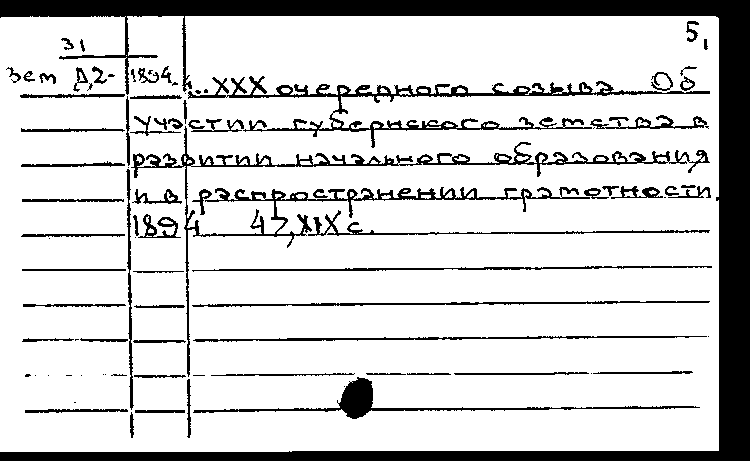 5,
31
Зем Д2- 1894. ... XXX очередного созыва Об
участии губернского земства в
развитии начального образования
и в распространении грамотности.
1894 47, XIX с.